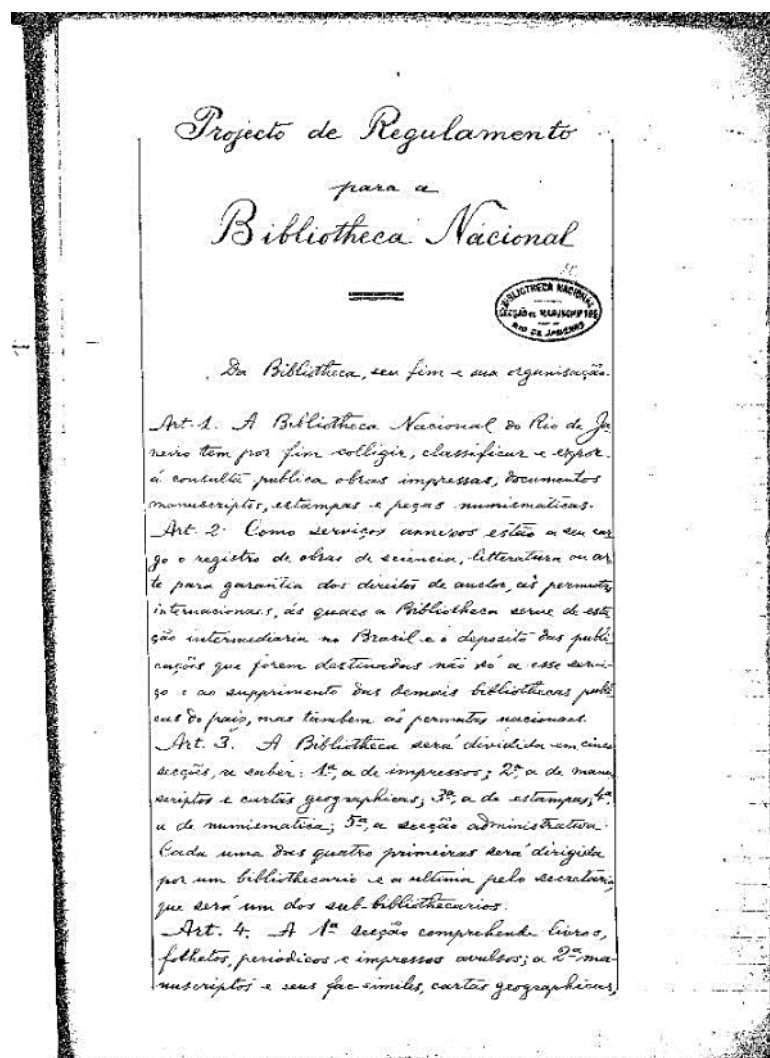 Projecto de Regulamento
para a
Bibliotheca Nacional
BIBLIOTHECA NACIONAL
SECÇÃO DE MANUSCRIPTOS
RIO DE JANEIRO
Da Bibliotheca, seu fim e sua organisação.
Art. 1. A Bibliotheca Nacional do Rio de Ja-
neiro tem por fim colligir, classificar e expor
á consulta publica obras impressas, documentos
manuscriptos, estampas e peças numismaticas.
Art. 2. Como serviços annexos estão a seu car
go o registro de obras de sciencia, litteratura ou ar
te para garantia dos direitos de auctor, as permutas
internacionaes, ás quaes a Bibliotheca serve de esta
ção intermediaria no Brasil e o deposito das publi
cações que forem destinadas não só a esse servi-
ço e ao supprimento das demais bibliothecas publi
cas do paiz, mas tambem ás permutas nacionaes.
Art. 3. A Bibliotheca será dividida em cinco
secções, a saber: 1ª, a de impressos; 2ª, a de manu
scriptos e cartas geographicas; 3ª, a de estampas; 4ª,
a de numismatica; 5ª, a secção administrativa.
Cada uma das quatro primeiras será dirigida
por um bibliothecario e a ultima pelo secretario,
que será um dos sub-bibliothecarios.
Art. 4. A 1ª secção comprehende livros,
folhetos, periodicos e impressos avulsos; a 2ª ma-
nuscriptos e seus fac-similes, cartas geographicas,